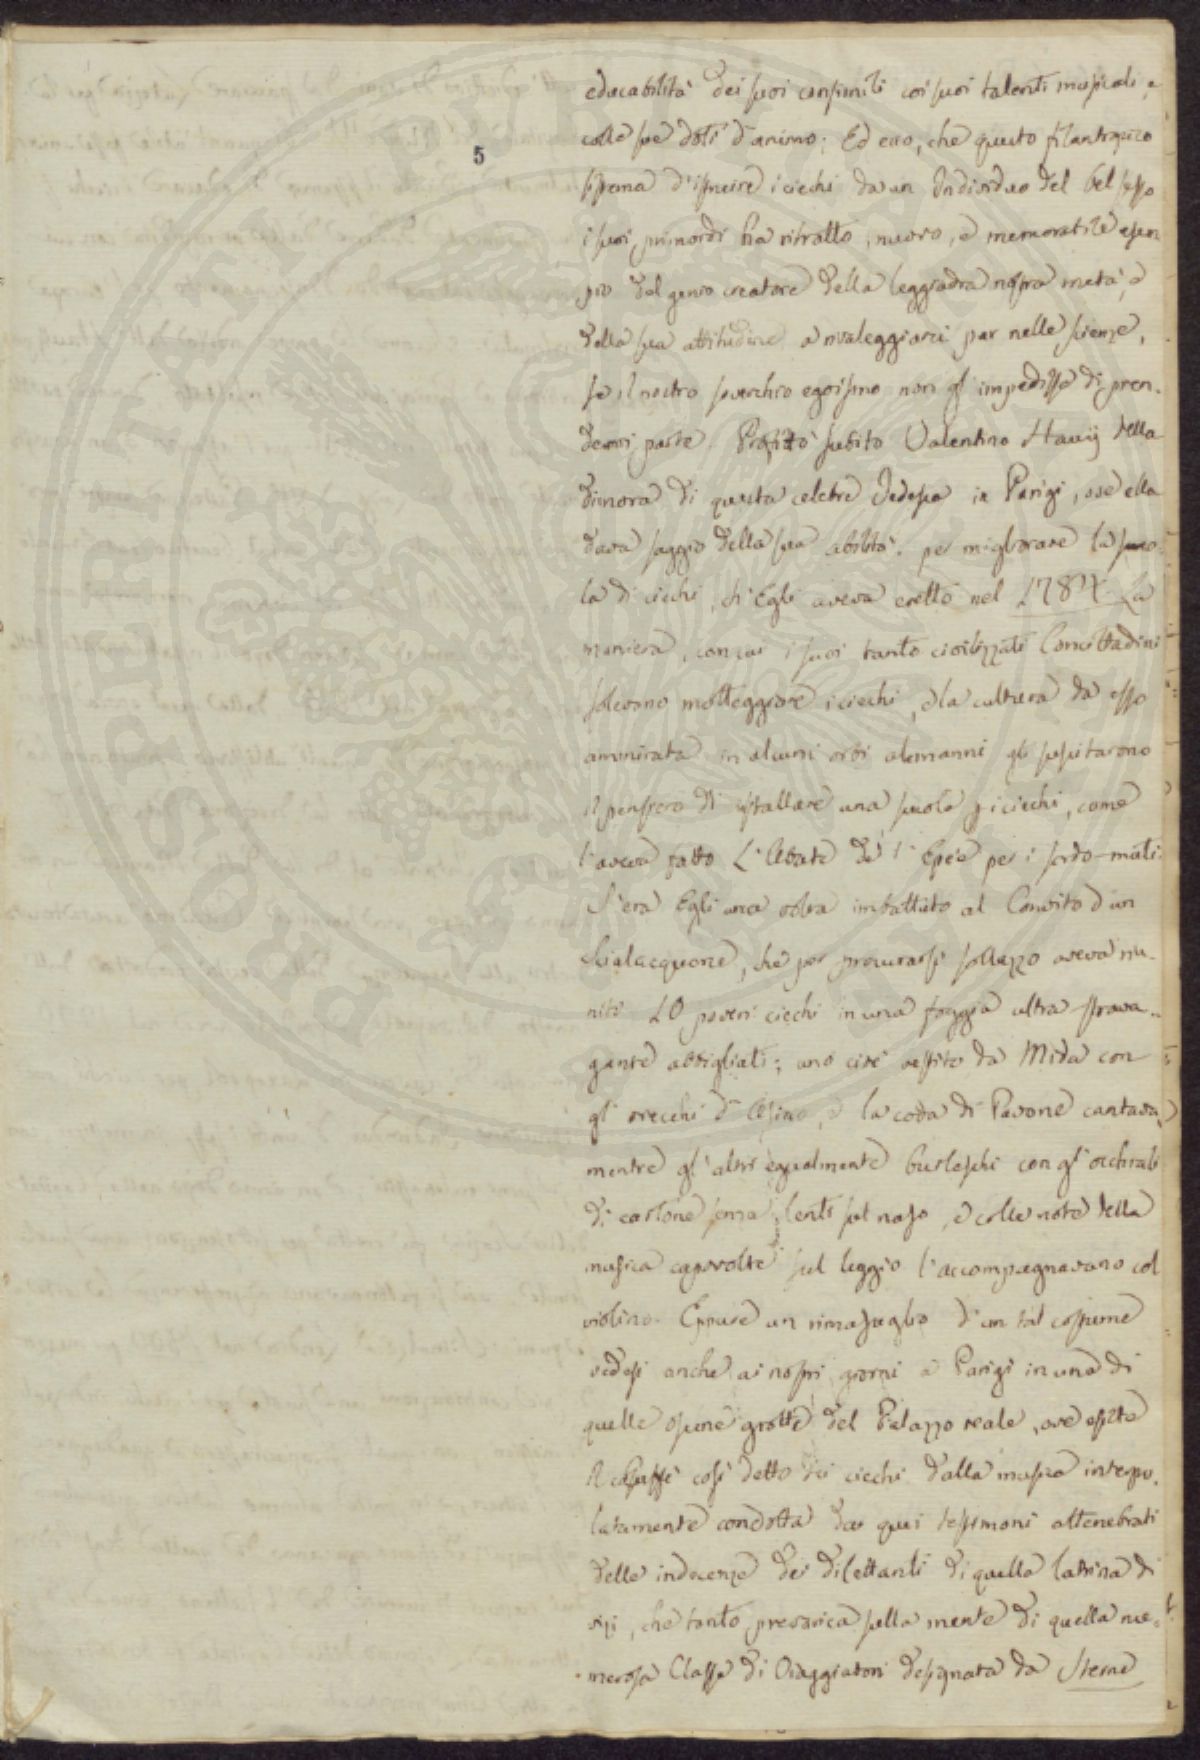 5
educabilità dei suoi consimili coi suoi talenti musicali, e
colle sue doti d'animo; Ed ecco, che questo filantropico
sistema d'istruire i ciechi da un Individuo del bel sesso
i suoi primordi ha ritratto, nuovo, e memorabile esem
pio del genio creatore della leggiadra nostra metà, e
della sua attitudine a rivaleggiarci pur nelle scienze,
se il nostro soverchio egoismo non gl' impedisse di pren-
dervi parte. Profittò subito Valentino Hauÿ della
dimora di questa celebre Tedesca in Parigi, ove ella
dava saggio della sua abilità, per migliorare la scuo-
la di ciechi, ch' Egli aveva eretto nel 1784. La
maniera, con cui i suoi tanto civilizzati Concittadini
solevano motteggiare i ciechi, e la cultura da esso
ammirata in alcuni orbi alemanni gli suscitarono
il pensiero di istallare una scuola p i ciechi, come
l'aveva fatto L'Abate de l' Epée per i sordo-muti.
S'era Egli una volta imbattuto al Convito d'un
Scialacquone, che per procurarsi sollazzo aveva riu-
niti 10 poveri ciechi in una foggia ultra strava-
gante abbigliati; uno cioè vestito da Mida con
gl' orecchi d' Asino, e la coda di Pavone cantava,
mentre gl' altri egualmente burleschi con gl' occhiali
di cartone senza lenti sul naso, e colle note della
musica capovolte sul leggio l'accompagnavano col
violino. Eppure un rimasuglio d'un tal costume
vedesi anche ai nostri giorni a Parigi in una di
quelle oscure grotte del Palazzo reale, ove esiste
il Caffè così detto dei ciechi dalla musica interpo-
latamente condotta da quei testimoni attenebrati
delle indecenze dei dilettanti di quella latrina di
vizi, che tanto prevarica sulla mente di quella nu-
merosa Classe di Viaggiatori designata da Sterne
PROSPERITATI PUBLICAE